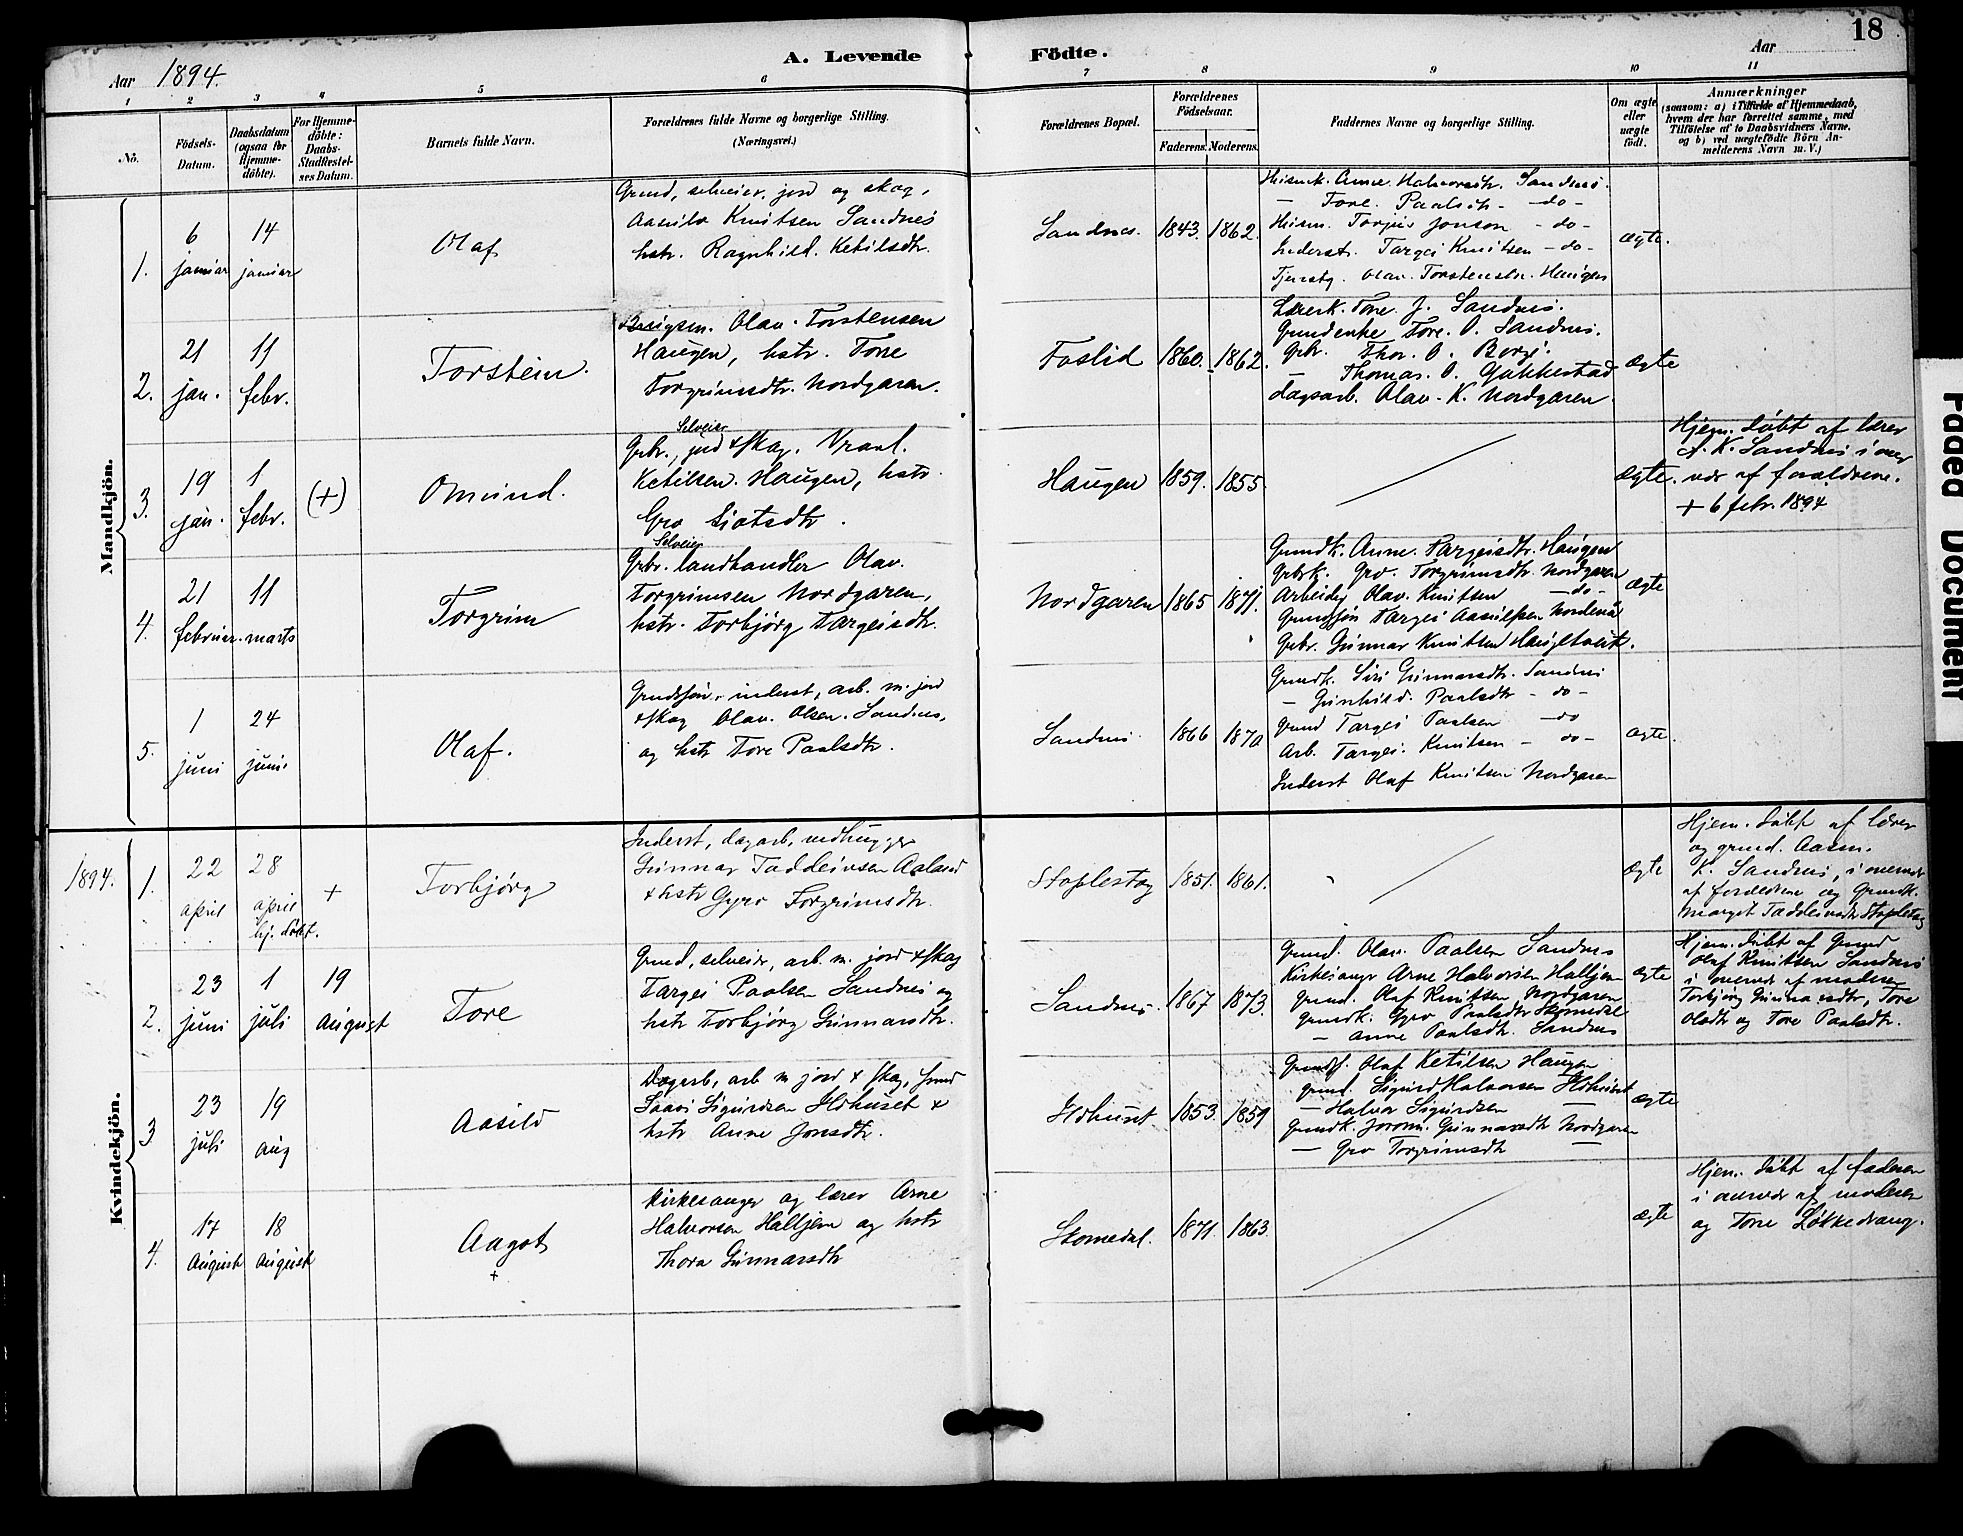 18
A. Levende Födte.
Aar 1894.
Aar
1 2 3 4 5 6 7 8 9 10 11
No.
Födsels-Datum.
Daabsdatum (ogsaa for Hjemme-döbte).
For Hjemme-döbte: Daabs-Stadfæstel-ses Datum.
Barnets fulde Navn.
Forældrenes fulde Navne og borgerlige Stilling. (Næringsvei.)
Forældrenes Bopæl.
Forældrenes Födselsaar.
Faderens. Moderens.
Faddernes Navne og borgerlige Stilling.
Om ægte eller uægte födt.
Anmærkninger
(saasom: a) i Tilfælde af Hjemmedaab,
hvem der har forrettet samme, med
Tilföielse af to Daabsvidners Navne.
og b) ved uægtefödte Börn An-
melderens Navn m. V.)
Mandkjön.
1.
6 januar
14 januar
Olaf
Grund, selveier, jord og skog,
Aasulv Knutsen Sandnes
hstr. Ragnhild. Ketilsdtr.
Sandnes. 1843. 1862.
Husmk. Anne. Halvorsdtr. Sandnes.
— Tore. Paalsdtr - do -
Husm. Torjus Jonson - do -
Inderst. Targei Knutsen - do -
Olav. Torstensen. Haugen
ægte.
2.
21 jan.
11 febr.
Torstein.
Olav. Torstensen
Haugen, hstr. Tore
Torgrimsdtr. Nordgaren.
Foslid 1860. 1862.
Tore. J. Sandnes.
Grundenke Tore. O. Sandnes.
Grbr. Thor. O. Berge.
— Thomas. O. Gakkestad
dagsarb. Olav. K. Nordgaren.
ægte
3.
19 jan.
1 febr.
(+)
Omund.
Selveier
Grbr., jord & skog. Vraal.
Ketilsen. Haugen, hstr.
Gro
Haugen 1859. 1855.
ægte.
Hjem. döbt af lærer
A. K. Sandnes i over
vær af forældrene.
+ 6 febr. 1894
4.
21 februar.
11 marts
Torgrim
Selveier
Grbr. landhandler Olav.
Torgrimsen Nordgaren,
hstr. Torbjørg Targeisdtr.
Nordgaren 1865 1871.
Grundk. Anne. Targeisdtr. Haugen
Grbrk. Gro. Torgrimsdtr. Nordgaren
Arbeider Olav. Knutsen - do -
Targei Aasulfsen
Grbr. Gunnar Knutsen
ægte
5.
1 juni
24 juni.
Olaf.
inderst, arb. m. jord
& skog Olav. Olsen. Sandnes,
og hstr Tore Paalsdtr.
Sandnes. 1866 1870
Grundk. Siri Gunnarsdtr. Sandnes
— Gunhild. Paalsdtr - do -
Grund Targei Paalsen - do
Arb. Targei. Knutsen - do -
Inderst Olaf Knutsen Nordgaren
ægte.
Kvindekjön.
1894.
1.
22 april
28 april
hj. døbt.
+
Torbjørg
Inderst, dagarb, vedhugger
Gunnar Taddeivsen Aaland
& hstr Gyro Torgrimsdtr.
Stoplestog 1851. 1861.
ægte
Hjem. döbt af lærer
og grund. Aasm.
K. Sandnes, i overvær
af forældrene og Grundk.
Margit Taddeivsdtr Stoplestog
2.
23 juni
1 juli
19 august
Tore
Grund, selveier, arb. m. jord & skog
Targei Paalsen Sandnes og
hstr Torbjørg Gunnarsdtr.
Sandnes. 1867 1873.
Grund. Olav. Paalsen Sandnes
Kirkesanger Arne Halvorsen Halljem
Grund. Olaf Knutsen Nordgaren
Grundk. Gyro Paalsdtr Skomedal
— Anne Paalsdtr. Sandnes
ægte
Hjem. döbt af Grund
Olaf Knutsen Sandnes
i overvær af moderen
Torbjörg Gunnarsdtr, Tore
Olsdtr og Tore Paalsdtr.
3
23 juli
19 aug
Aasild
Dagarb, arb m jord & skog, Grund
Saavi Sigurdsen Ildhuset &
hstr Anne Jonsdtr.
Ildhuset. 1853. 1859
Olaf Ketilsen Haugen
grund. Sigurd Halvorsen Ildhuset
— Halvor Sigurdsen —
Grundk. Joron. Gunnarsdtr Nordgaren
— Gro Torgrimsdtr —
ægte
4.
17 August
18 August
Aagot
+
Kirkesanger og lærer Arne
Halvorsen Halljem og hstr
Thora Gunnarsdtr
Skomedal. 1871. 1863.
ægte
Hjem. döbt af faderen
i overvær af moderen
og Tone Løkkedrang.
Paged Document